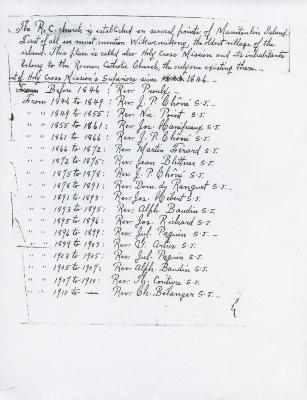 The R.C. church is established on several points of Manitoulin Island.
First of all we must mention Wikwemikong, the oldest village of the
island. This place is called also Holy Cross Mission and its inhabitants
belong to the Roman Catholic Church, the only one existing there.
of Holy Cross Mission's Superiors since 1846.
Before 1846 : Rev. Proulx
From 1846 to 1849 : Rev. J. P. Chôné S.J.
" " 1849 to 1855 : Rev. Nic. Point S.J.
" " 1855 to 1861 : Rev. Jos. Hanipaux S.J.
" " 1861 to 1866 : Rev. J. P. Chôné S.J.
" " 1866 to 1872 : Rev. Martin Férard S.J.
" " 1872 to 1875 : Rev. Jean Blettner S.J.
" " 1875 to 1878 : Rev. J. P. Chôné S.J.
" " 1878 to 1891 : Rev. Dom. du Ranquet S.J.
" " 1891 to 1893 : Rev. Jos. Hebert S.J.
" " 1893 to 1895 : Rev. Alph. Baudin S.J.
" " 1895 to 1896 : Rev. Jos. Richard S.J.
" " 1896 to 1899 : Rev. Jul. Paquin S.J.
" " 1899 to 1903 : Rev. Artus S.J.
" " 1903 to 1905 : Rev. Jul. Paquin S.J.
" " 1905 to 1907 : Rev. Alph. Baudin S.J.
" " 1907 to 1910 : Rev. Th. Couture S.J.
" " 1910 to — Rev. Ch. Bélanger S.J.